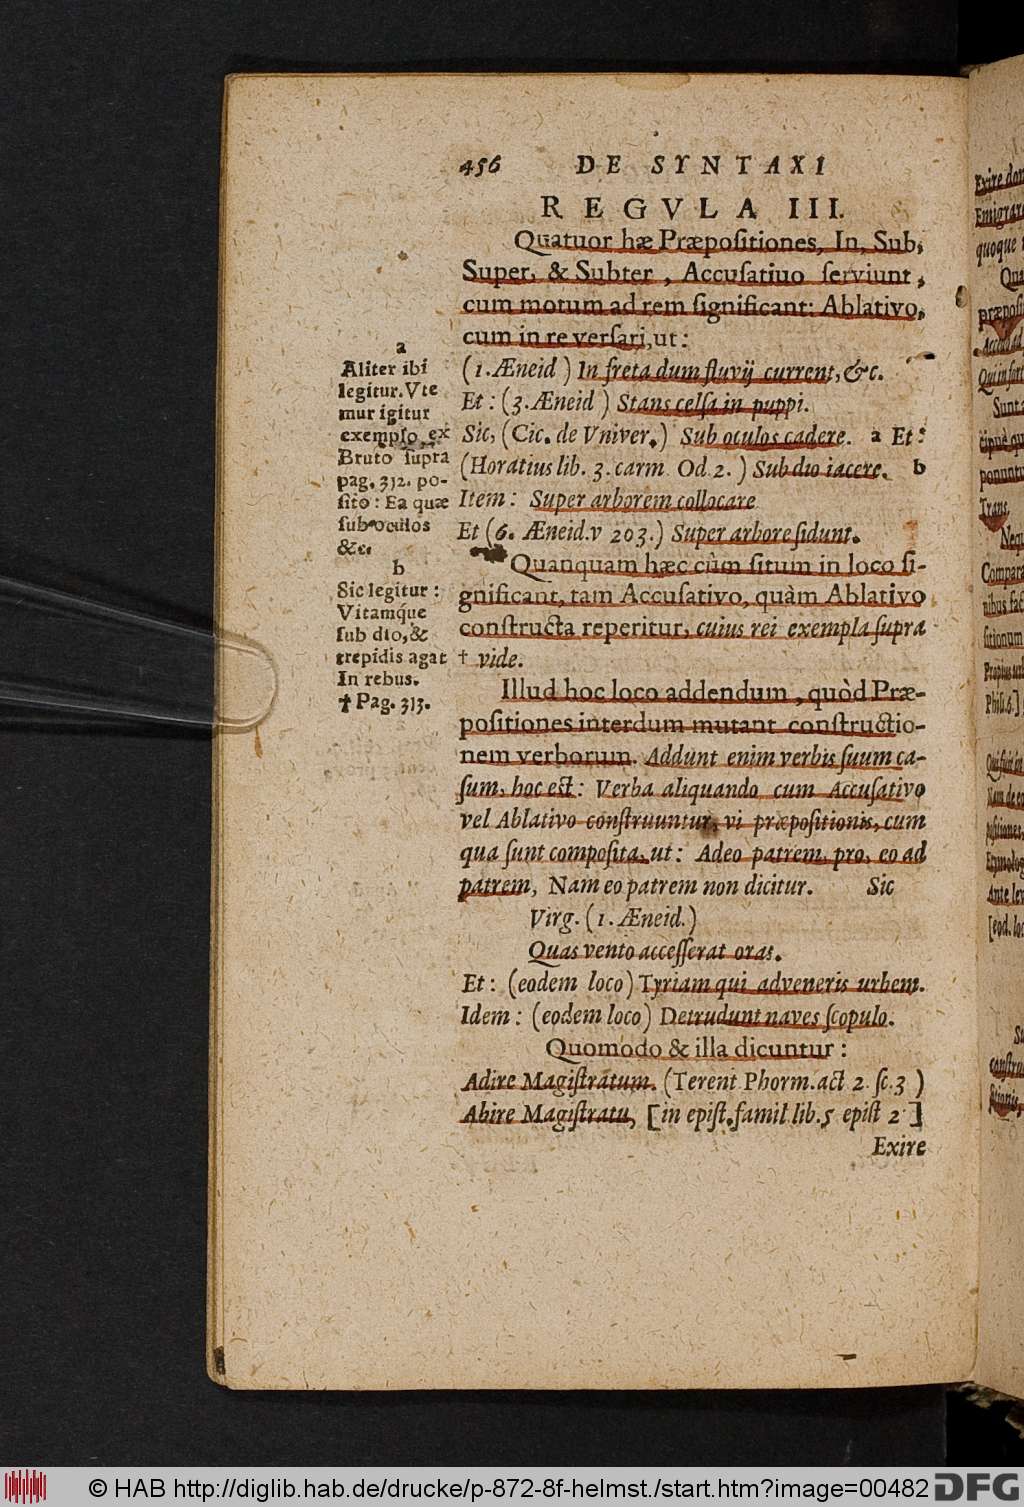 456 DE SYNTAXI
REGVLA III.
Quatuor hæ Præpoſitiones, In, Sub,
Super, & Subter, Accuſativo ſerviunt,
cum motum ad rem ſignificant: Ablativo,
cum in re verſari, ut:
(1. Æneid ) In freta dum fluvij current, &c.
Et: (3. Æneid ) Stans celſa in puppi.
Sic, (Cic. de Vniver.) Sub oculos cadere. a Et:
(Horatius lib. 3. carm Od 2. ) Sub dio iacere. b
Item: Super arborem collocare
Et (6. Æneid. v 203.) Super arbore ſidunt.
Quanquam hæc cùm ſitum in loco ſi-
gnificant, tam Accuſativo, quàm Ablativo
conſtructa reperitur, cuius rei exempla ſupra
† vide.
Illud hoc loco addendum, quòd Præ-
poſitiones interdum mutant conſtructio-
nem verborum. Addunt enim verbis ſuum ca-
ſum, hoc eſt: Verba aliquando cum Accuſativo
vel Ablativo conſtruuntur, vi præpoſitionis, cum
qua ſunt compoſita, ut: Adeo patrem, pro, eo ad
patrem, Nam eo patrem non dicitur. Sic
Virg. (1. Æneid.)
Quas vento acceſſerat oras.
Et: (eodem loco) Tyriam qui adveneris urbem.
Idem: (eodem loco) Detrudunt naves ſcopulo.
Quomodo & illa dicuntur:
Adire Magiſtratum. (Terent Phorm. act 2. ſc. 3 )
Abire Magiſtratu, [in epiſt. famil lib. 5 epiſt 2 ]
Exire
a
Aliter ibi
legitur. Vte
mur igitur
exemplo, ex
Bruto ſupra
pag. 312. po-
ſito: Ea quæ
ſub oculos
&c.
b
Sic legitur:
Vitamq́ue
ſub dio, &
trepidis agat
In rebus.
† Pag. 313.
Exire
Emigrare
quoque
Qua
præpoſi
Accedo ad
Sunt
cipuè qu
ponuntu
Trans,
Neq
Compara
nibus fac
ſitionum
Ante
[eod. loc
© HAB http://diglib.hab.de/drucke/p-872-8f-helmst./start.htm?image=00482 DFG